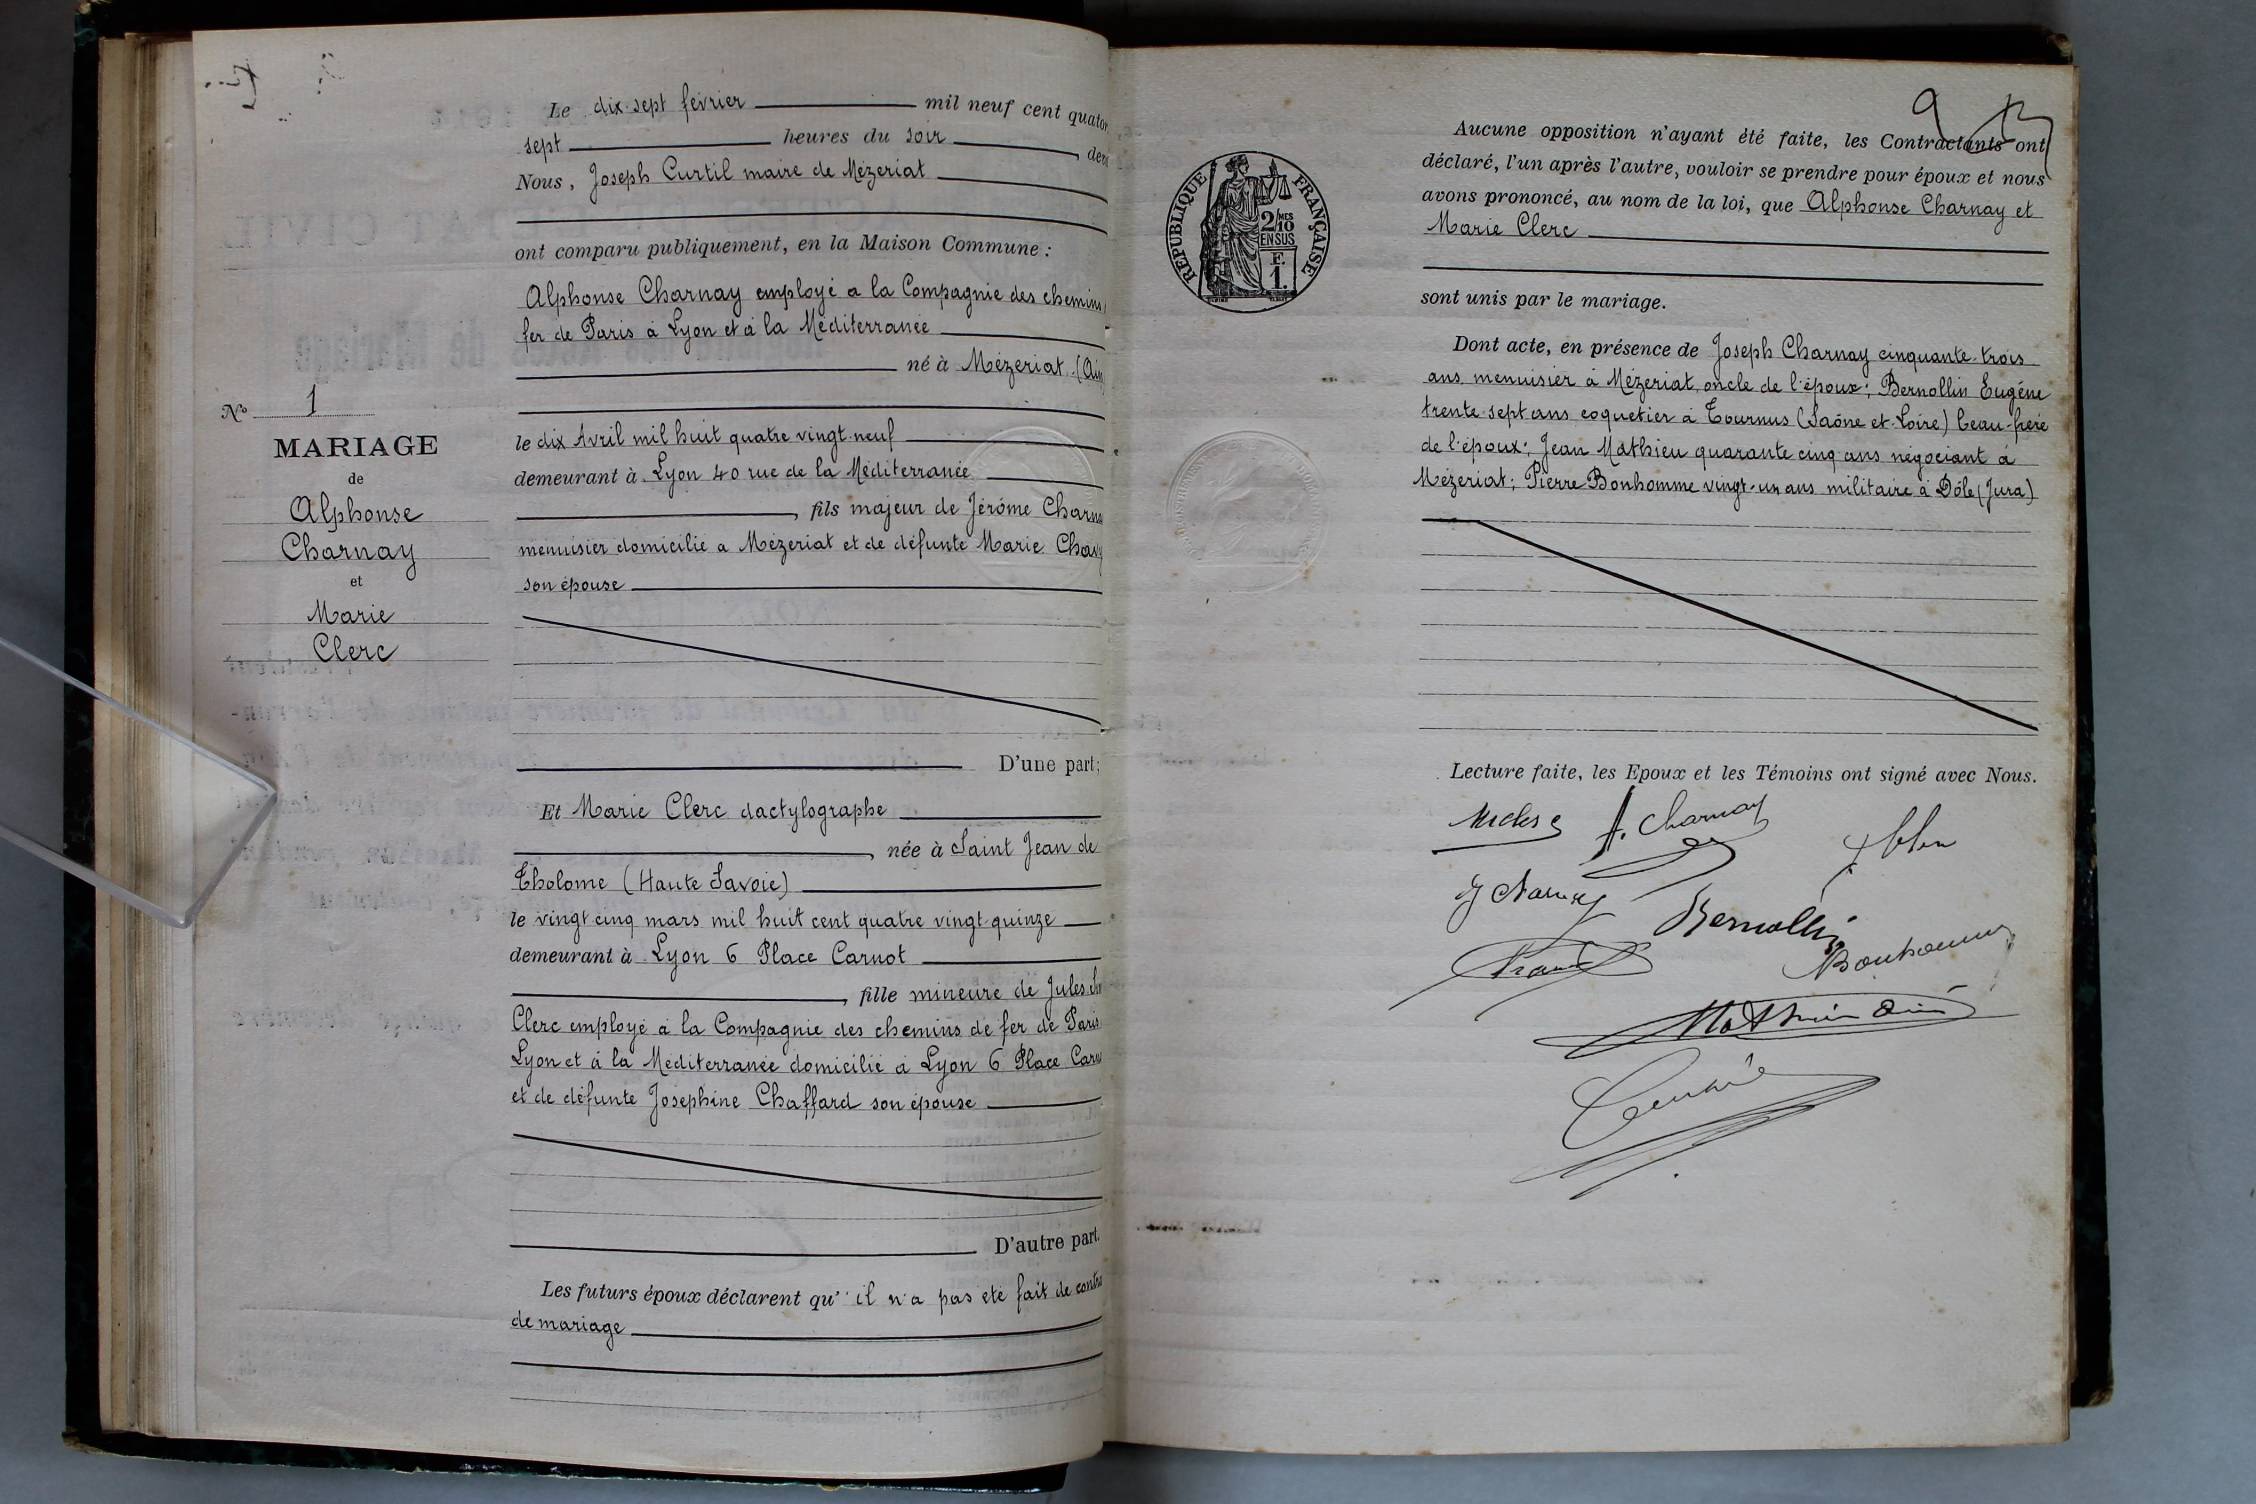 Le dix-sept février mil neuf cent quator
sept heures du soir, dev
Nous, Joseph Curtil maire de Mézériat
ont comparu publiquement, en la Maison Commune :
Alphonse Charnay employé a la Compagnie des chemins
fer de Paris à Lyon et à la Méditerranée
né à Mézériat (Ain
le dix Avril mil huit quatre vingt-neuf
demeurant à Lyon 40 rue de la Méditerranée
, fils majeur de Jérôme Charna
menuisier domicilié a Mézériat et de défunte Marie
son épouse
D'une part;
Et Marie Clerc dactylographe
, née à Saint Jean de
Tholome (Haute Savoie)
le vingt-cinq mars mil huit cent quatre vingt-quinze
demeurant à Lyon 6 Place Carnot
, fille mineure de Jules
Clerc employé à la Compagnie des chemins de fer de Paris
Lyon et à la Méditerranée domicilié à Lyon 6 Place Carn
et de défunte Joséphine Chaffard son épouse
D'autre part.
Les futurs époux déclarent qu'il n'a pas été fait de contra
de mariage
No 1
MARIAGE
de
Alphonse
Charnay
et
Marie
Clerc
RÉPUBLIQUE FRANÇAISE
2/10
MES
EN SUS
F.
1.
Aucune opposition n'ayant été faite, les Contractants ont
déclaré, l'un après l'autre, vouloir se prendre pour époux et nous
avons prononcé, au nom de la loi, que Alphonse Charnay et
Marie Clerc
sont unis par le mariage.
Dont acte, en présence de Joseph Charnay cinquante-trois
ans menuisier à Mézériat, oncle de l'époux; Bernollin Eugène
trente-sept ans coquetier à Tournus (Saône et-Loire) beau-frère
de l'époux; Jean Mathieu quarante cinq ans négociant à
Mézériat; Pierre Bonhomme vingt-un ans militaire à Dôle (Jura)
Lecture faite, les Epoux et les Témoins ont signé avec Nous.
A. Charnay
J Charnay
Bernollin
Bonhomme